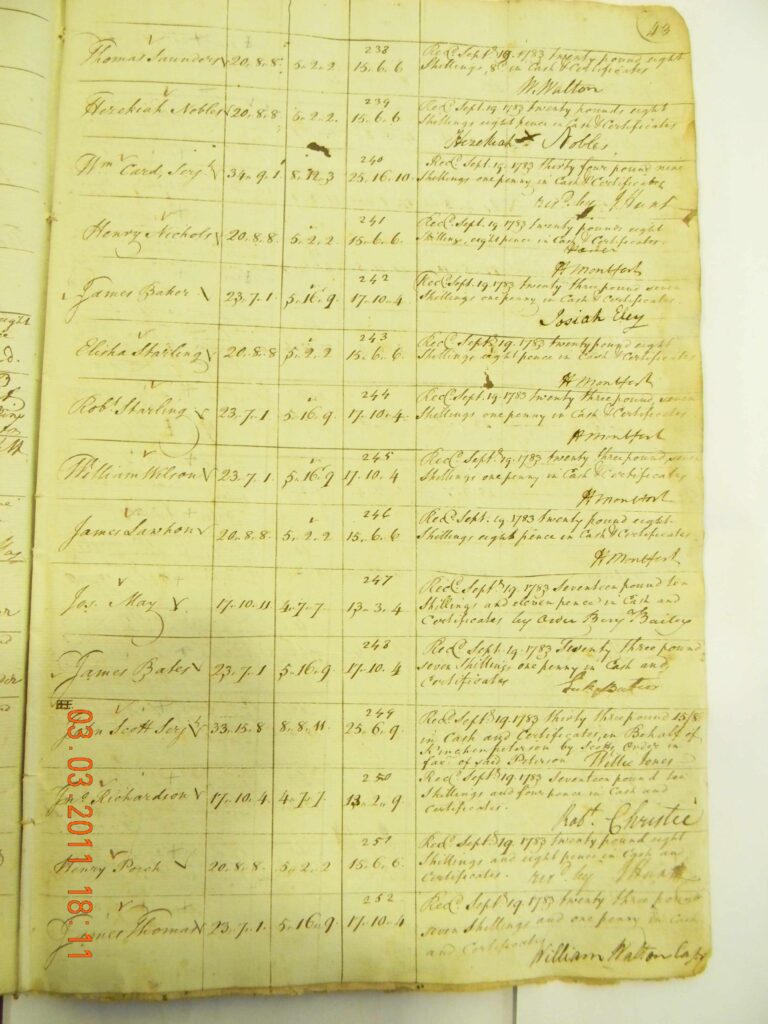 43
238
Thomas Saunders 20.8.8 5.2.2 15.6.6 Recd. Septr. 19. 1783 twenty pound eight
Shillings, 8d in Cash & Certificates
W. Walton
239
Hezekiah Nobles 20.8.8 5.2.2 15.6.6 Recd. Sept. 19. 1783 twenty pounds eight
Shillings eight pence in Cash & Certificates
Hezekiah X Nobles
240
Wm. Card, Serjt. 34.9.1 8.12.3 25.16.10 Recd. Sept. 19. 1783 thirty four pound nine
Shillings one penny in Cash & Certificates
by J Hunt
241
Henry Nichols 20.8.8 5.2.2 15.6.6 Recd. Sept. 19 1783 twenty pounds eight
Shillings, eight pence in Cash & Certificates.
H Montfort
242
James Baker 23.7.1 5.16.9 17.10.4 Recd. Sept. 19. 1783 twenty three pound seven
Shillings one penny in Cash & Certificates
Josiah Eley
243
Elisha Starling 20.8.8 5.2.2 15.6.6 Recd. Septr. 19. 1783 twenty pound eight
Shillings eight pence in Cash & Certificates
H Montfort
244
Robt. Starling 23.7.1 5.16.9 17.10.4 Recd. Sept. 19. 1783 twenty three pound, seven
Shillings one penny in Cash & Certificates
H Montfort
245
William Wilson 23.7.1 5.16.9 17.10.4 Recd. Septr. 19. 1783 twenty three pound seven
Shillings one penny in Cash & Certificates
H Montfort
246
James Lawhon 20.8.8 5.2.2 15.6.6 Recd. Sept. 19 1783 twenty pound eight
Shillings eight pence in Cash & Certificates
H Montfort
247
Jos. May 17.10.11 4.7.7 13.3.4 Recd. Septr. 19. 1783 Seventeen pound ten
Shillings and eleven pence in Cash and
Certificates by Order Benj. Bailey
248
James Bates 23.7.1 5.16.9 17.10.4 Recd. Sept. 19. 1783 Twenty three pound
seven Shillings one penny in Cash and
Certificates
249
John Scott Serjt. 33.15.8 8.8.11 25.6.9 Recd. Septr. 19. 1783 thirty three pound 15/8
in Cash and Certificates, in Behalf of
Kinchen Peterson by Scotts Order in
favr. of said Peterson Willie Jones
250
Jno. Richardson 17.10.4 4.7.7 13.2.9 Recd. Septr. 19. 1783 Seventeen pound ten
Shillings and four pence in Cash and
Certificates.
Robt. Christie
251
Henry Porch 20.8.8 5.2.2 15.6.6 Recd. Septr. 19. 1783 twenty pound eight
Shillings and eight pence in Cash and
Certificates. by J Hunt
252
James Thomas 23.7.1 5.16.9 17.10.4 Recd. Septr. 19. 1783 twenty three pound
seven Shillings and one penny in Cash
and Certificates
William Walton Capt.
03.03.2011 18:11